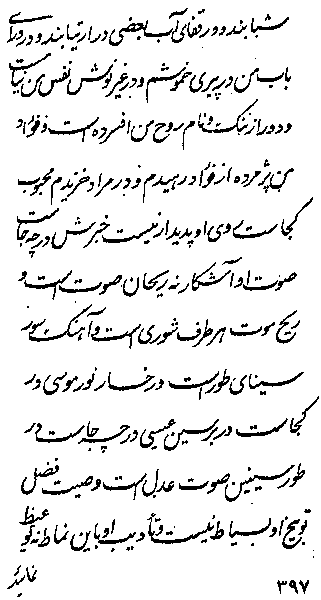 شتابند و در قفای آب بعضی در ارتیابند و در ورای
باب من در پیری خموشم و در غیر نوش نفس من نیات
و دور از ننگ و نام روح من افسرده است و فؤاد
من پژمرده از فؤاد رهیدم و در مراد خزیدم محبوب
کجاست روی او پدیدار نیست خبرش در چه جاست
صوت او آشکار نه ریحان صوت است و
ریح موت هر طرف شوری است و آهنگ سور
سینای طور است در رخسار نور موسی در
کجاست در بر سین عیسی در چه جاست در
طور سینین صوت عدل است و صیت فضل
توبیخ او بسیاط نیست و تأدیب او باین نماط نه گو غیظ
نمایند
۳۹۷